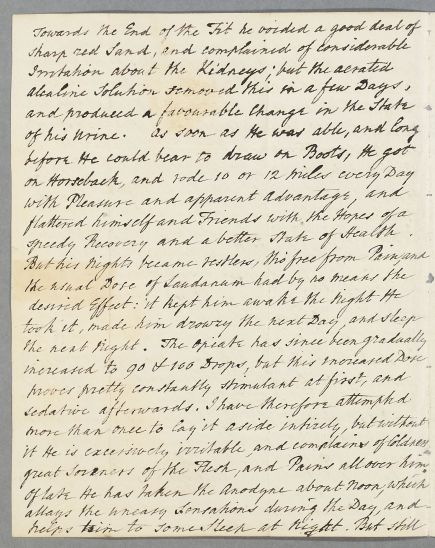 Towards the End of the Fit he voided a good deal of
sharp red Sand, and complained of considerable
Irritation about the Kidneys; but the aerated
alcaline Solution removed this in a few Days,
and produced a favourable Change in the State
of his Urine. As soon as He was able, and long
before He could bear to draw on Boots, He got
on Horseback, and rode 10 or 12 Miles every Day
with Pleasure and apparent Advantage, and
flattered himself and Friends with the Hopes of a
speedy Recovery and a better State of Health.
But his Nights became restless, tho' free from Pain, and
the usual Dose of Laudanum had by no means the
desired Effect: it kept him awake the Night He
took it, made him drowsy the next Day, and sleep
the next Night. The Opiate has since been gradually
increased to 90 & 100 Drops, but this increased Dose
proves pretty constantly stimulant at first, and
sedative afterwards. I have therefore attempted
more than once to lay it aside intirely, but without
it He is excessively irritable, and complains of Coldness,
great Soreness of the Flesh, and Pains all over him.
Of late He has taken the Anodyne about Noon, which
allays the uneasy Sensations during the Day, and
helps him to some Sleep at Night. But still